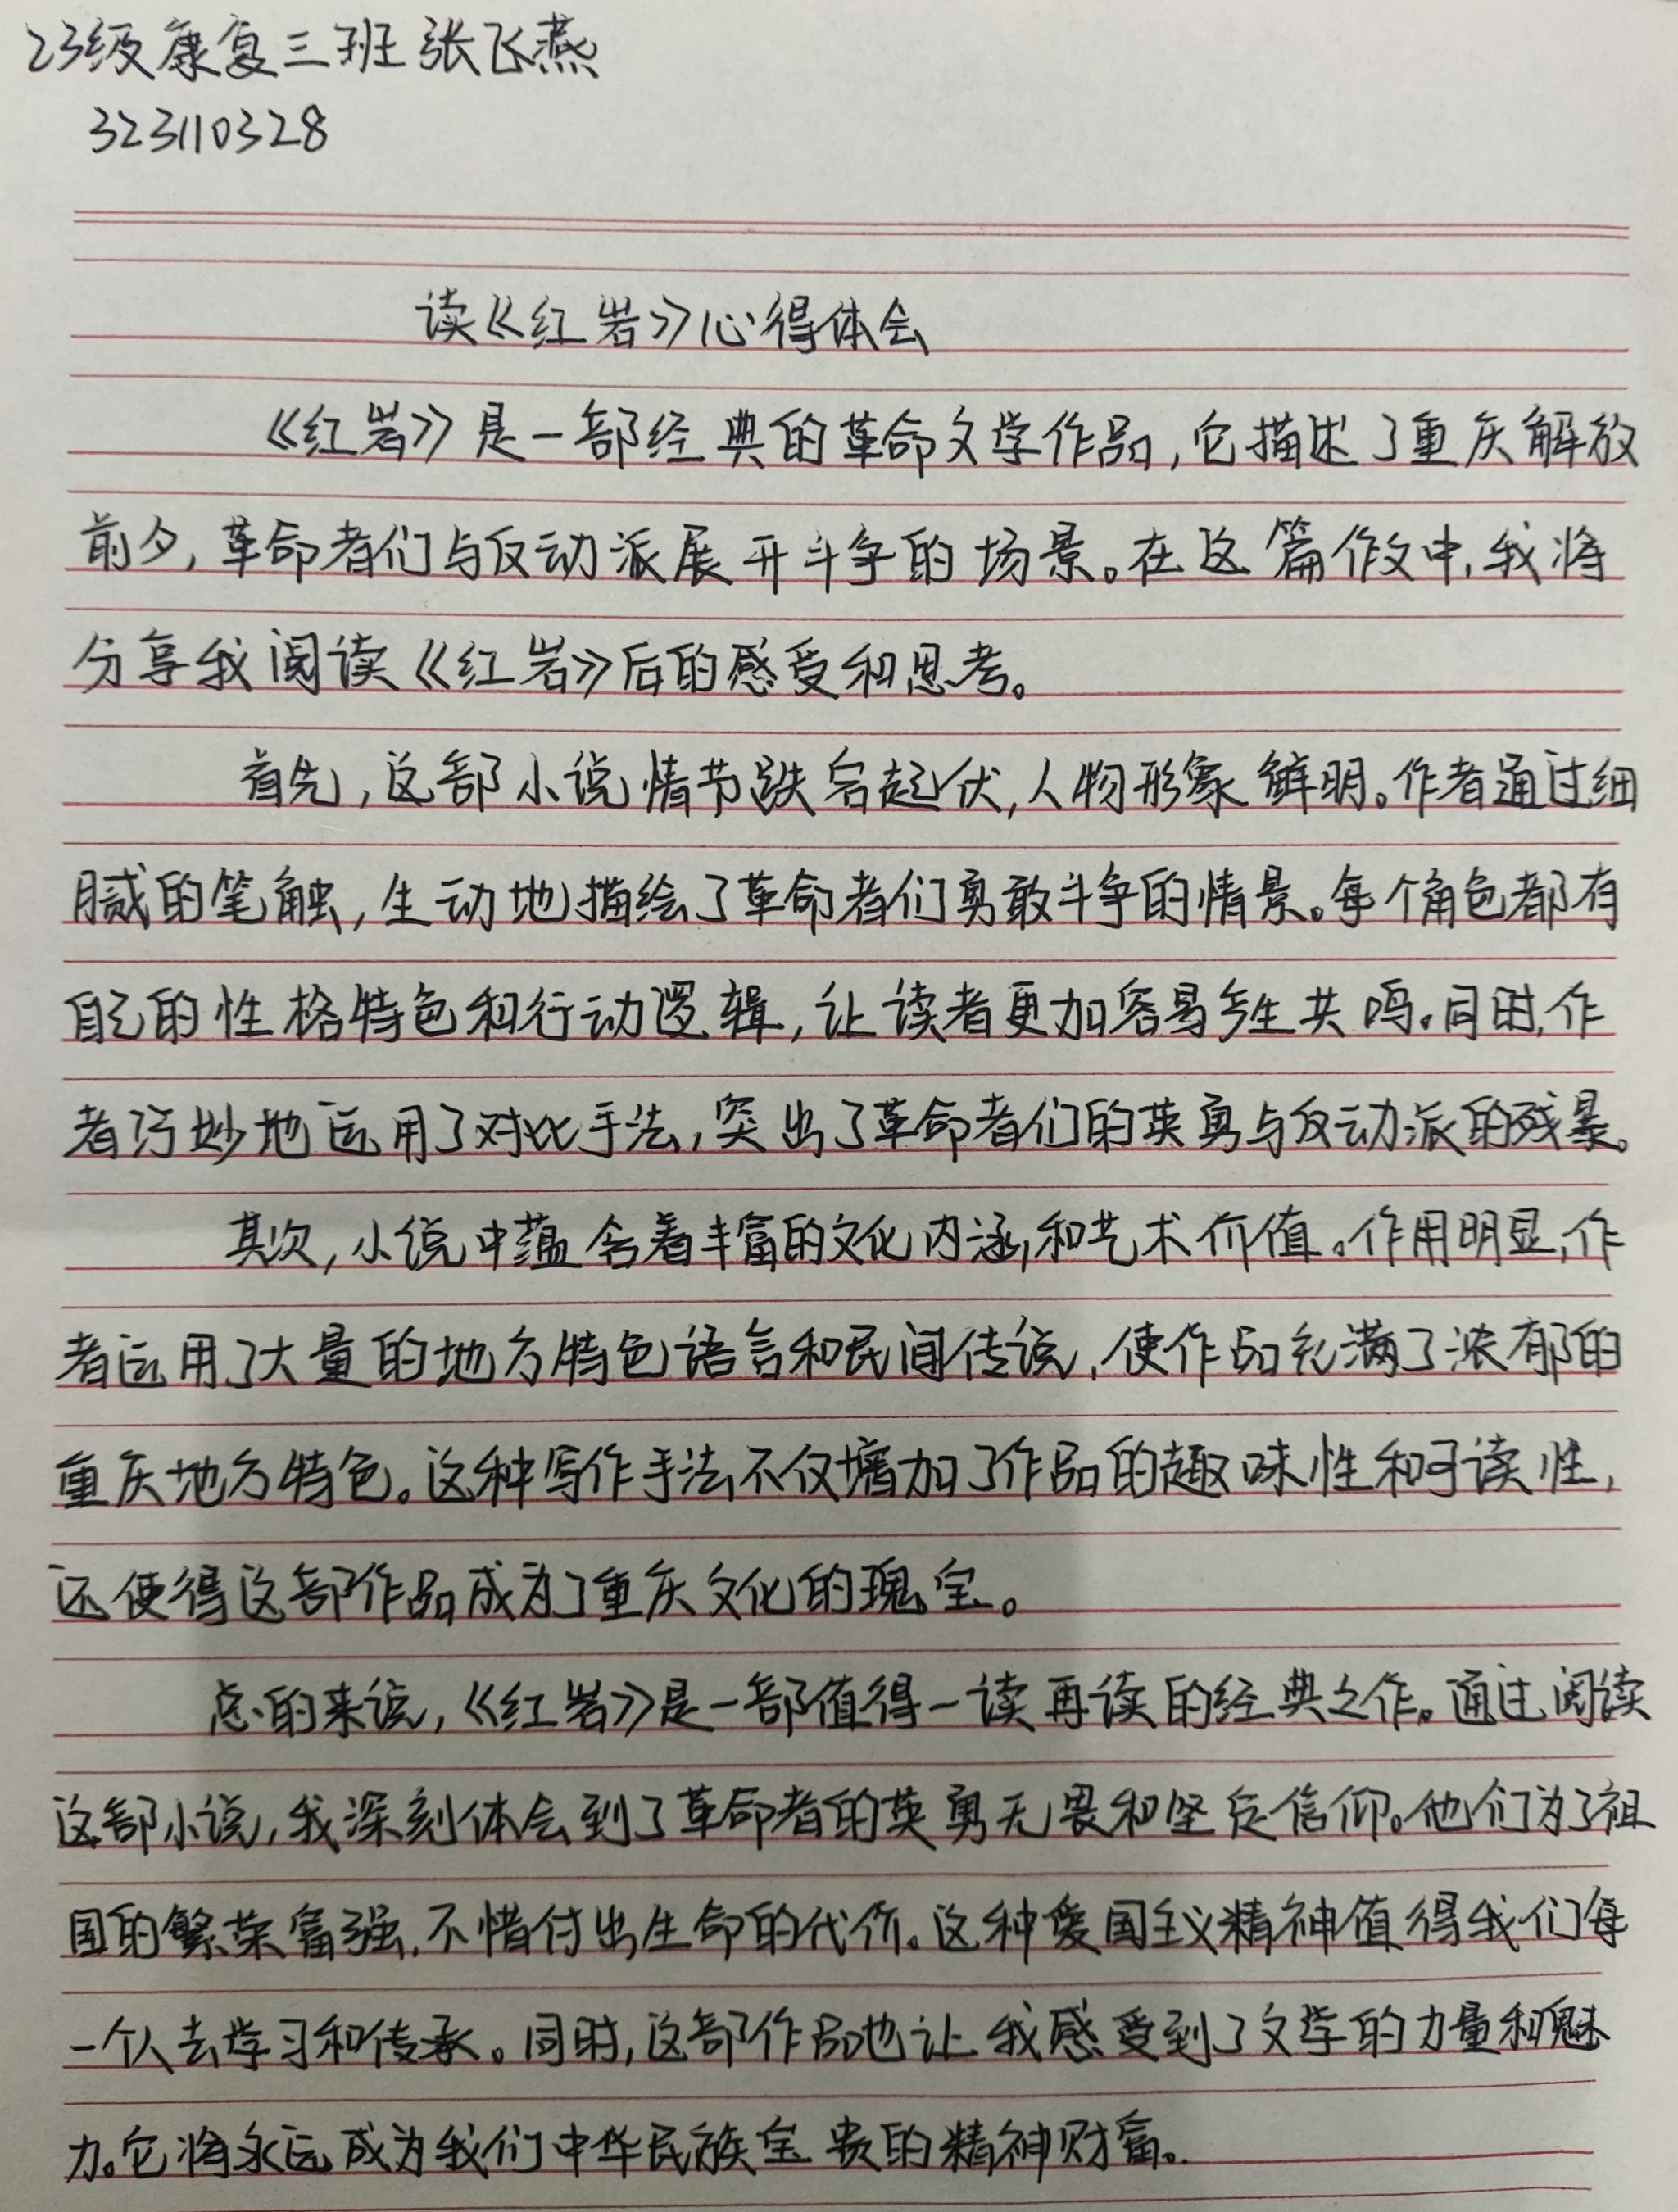 23级康复三班 张飞燕
323110328
读《红岩》心得体会
《红岩》是一部经典的革命文学作品,它描述了重庆解放
前夕,革命者们与反动派展开斗争的场景。在这篇作文中,我将
分享我阅读《红岩》后的感受和思考。
首先,这部小说情节跌宕起伏,人物形象鲜明。作者通过细
腻的笔触,生动地描绘了革命者们勇敢斗争的情景。每个角色都有
自己的性格特色和行动逻辑,让读者更加容易产生共鸣。同时,作
者巧妙地运用了对比手法,突出了革命者们的英勇与反动派的残暴。
其次,小说中蕴含着丰富的文化内涵和艺术价值。作用明显,作
者运用了大量的地方特色语言和民间传说,使作品充满了浓郁的
重庆地方特色。这种写作手法不仅增加了作品的趣味性和可读性,
还使得这部作品成为了重庆文化的瑰宝。
总的来说,《红岩》是一部值得一读再读的经典之作。通过阅读
这部小说,我深刻体会到了革命者的英勇无畏和坚定信仰。他们为了祖
国的繁荣富强,不惜付出生命的代价。这种爱国主义精神值得我们每
一个人去学习和传承。同时,这部作品也让我感受到了文学的力量和魅
力。它将永远成为我们中华民族宝贵的精神财富。